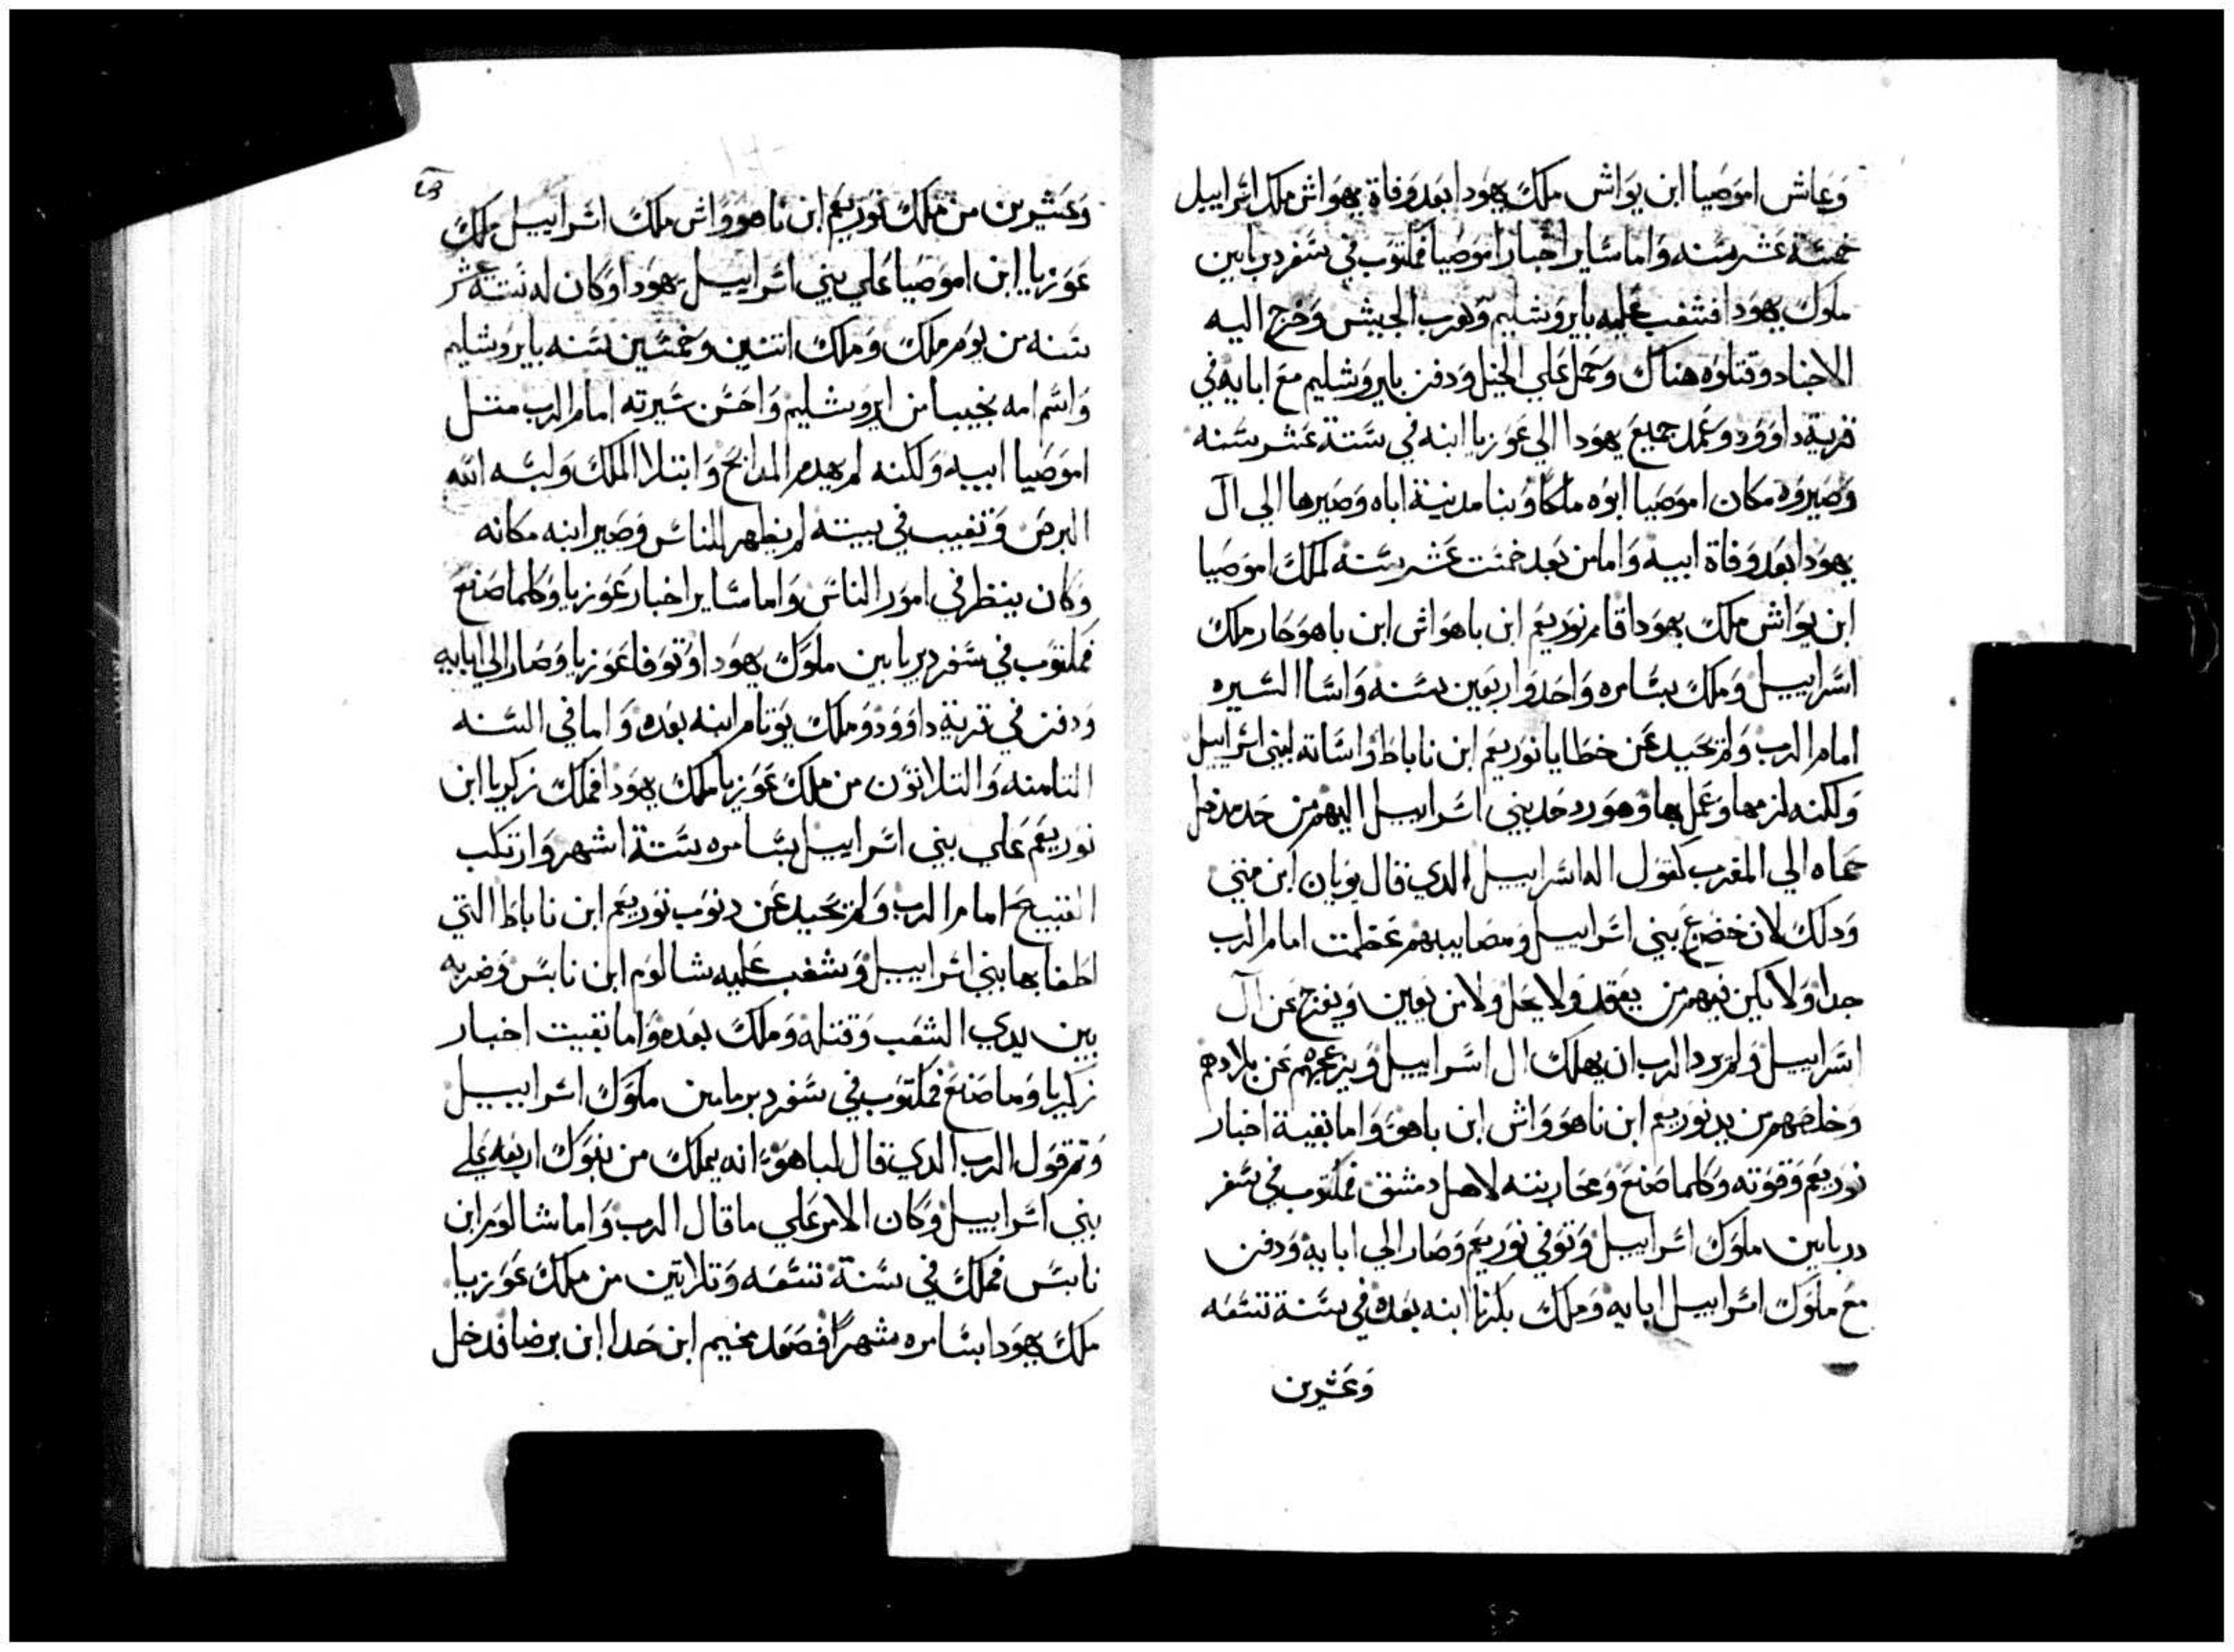 وعاش اموصيا ابن يواش ملك يهودا بعد وفاة يهواش ملك اسراييل
خمسة عشر سنه واما ساير اخبار اموصيا فمكتوب في سفر دبريامين
ملوك يهودا فشغب عليه بايروشليم وهرب الجيش وخرج اليه
الاجناد وقتلوه هناك وحمل علي الخيل ودفن بايروشليم مع ابايه في
قرية داوود وعمد جميع يهودا الي عوزيا ابنه في ستة عشر سنه
وصيروه مكان اموصيا ابوه ملكا وبنا مدينة اباه وصيرها الي ال
يهودا بعد وفاة ابيه واما من بعد خمست عشر سنه لملك اموصيا
ابن يواش ملك يهودا قام نوربعم ابن ياهواش ابن ياهوحار ملك
اسراييل وملك بسامره واحد واربعين سنه واسا السيره
امام الرب ولم يحيد عن خطايا نوربعم ابن ناباط واساته لبني اسراييل
ولكنه لزمها وعمل بها وهو رد حد بني اسراييل اليهم من حد مدخل
حماه الي المغرب كقول اله اسراييل الدي قال يونان ابن متي
ودلك لان خضع بني اسراييل ومصايبهم عظمت امام الرب
جدا ولا يكن فيهم من يعقد ولا يحل ولا من يعين ويفرج عن ال
اسراييل ولم يرد الرب ان يهلك ال اسراييل ويزعجهم عن بلادهم
وخلصهم من يد نوربعم ابن ناهوواش ابن ياهو واما بقية اخبار
نوربعم وقوته وكلما صنع ومحاربته لاهل دمشق فمكتوب في سفر
دبريامين ملوك اسراييل وتوفي نوربعم وصار الي ابايه ودفن
مع ملوك اسراييل ابايه وملك بكرنا ابنه بعده في سنة تسعه
وعشرين
وعشرين من ملك نوربعم ابن ناهوواش ملك اسراييل ملك
عوزيا ابن اموصيا علي بني اسراييل يهودا وكان له ستة عشر
سنه من يوم ملك وملك اتنين وخمسين سنه بايروشليم
واسم امه نجيبا من ايروشليم واحسن سيرته امام الرب متل
اموصيا ابيه ولكنه لم يهدم المدابح وابتلا الملك ولبسه الله
البرص وتغيب في بيته لم يظهر للناس وصير ابنه مكانه
وكان ينظر في امور الناس واما ساير اخبار عوزيا وكلما صنع
فمكتوب في سفر دبريامين ملوك يهودا وتوفا عوزيا وصار الي ابايه
ودفن في قرية داوود وملك يوتام ابنه بعده واما في السنه
التامنه والتلاتون من ملك عوزيا ملك يهودا فملك زكريا ابن
نوربعم علي بني اسراييل بسامره ستة اشهر وارتكب
القبيح امام الرب ولم يحيد عن دنوب نوربعم ابن ناباط التي
اطغا بها بني اسراييل وشغب عليه شالوم ابن نابس وضربه
بين يدي الشعب وقتله وملك بعده واما بقيت اخبار
زكريا وما صنع فمكتوب في سفر دبريامين ملوك اسراييل
وتم قول الرب الدي قال لياهو انه يملك من بنوك اربعه علي
بني اسراييل وكان الامر علي ما قال الرب واما شالوم ابن
نابس فملك في سنة تسعه وتلاتين من ملك عوزيا
ملك يهودا بسامره شهرا فصعد مخيم ابن حدا ابن برضا فدخل